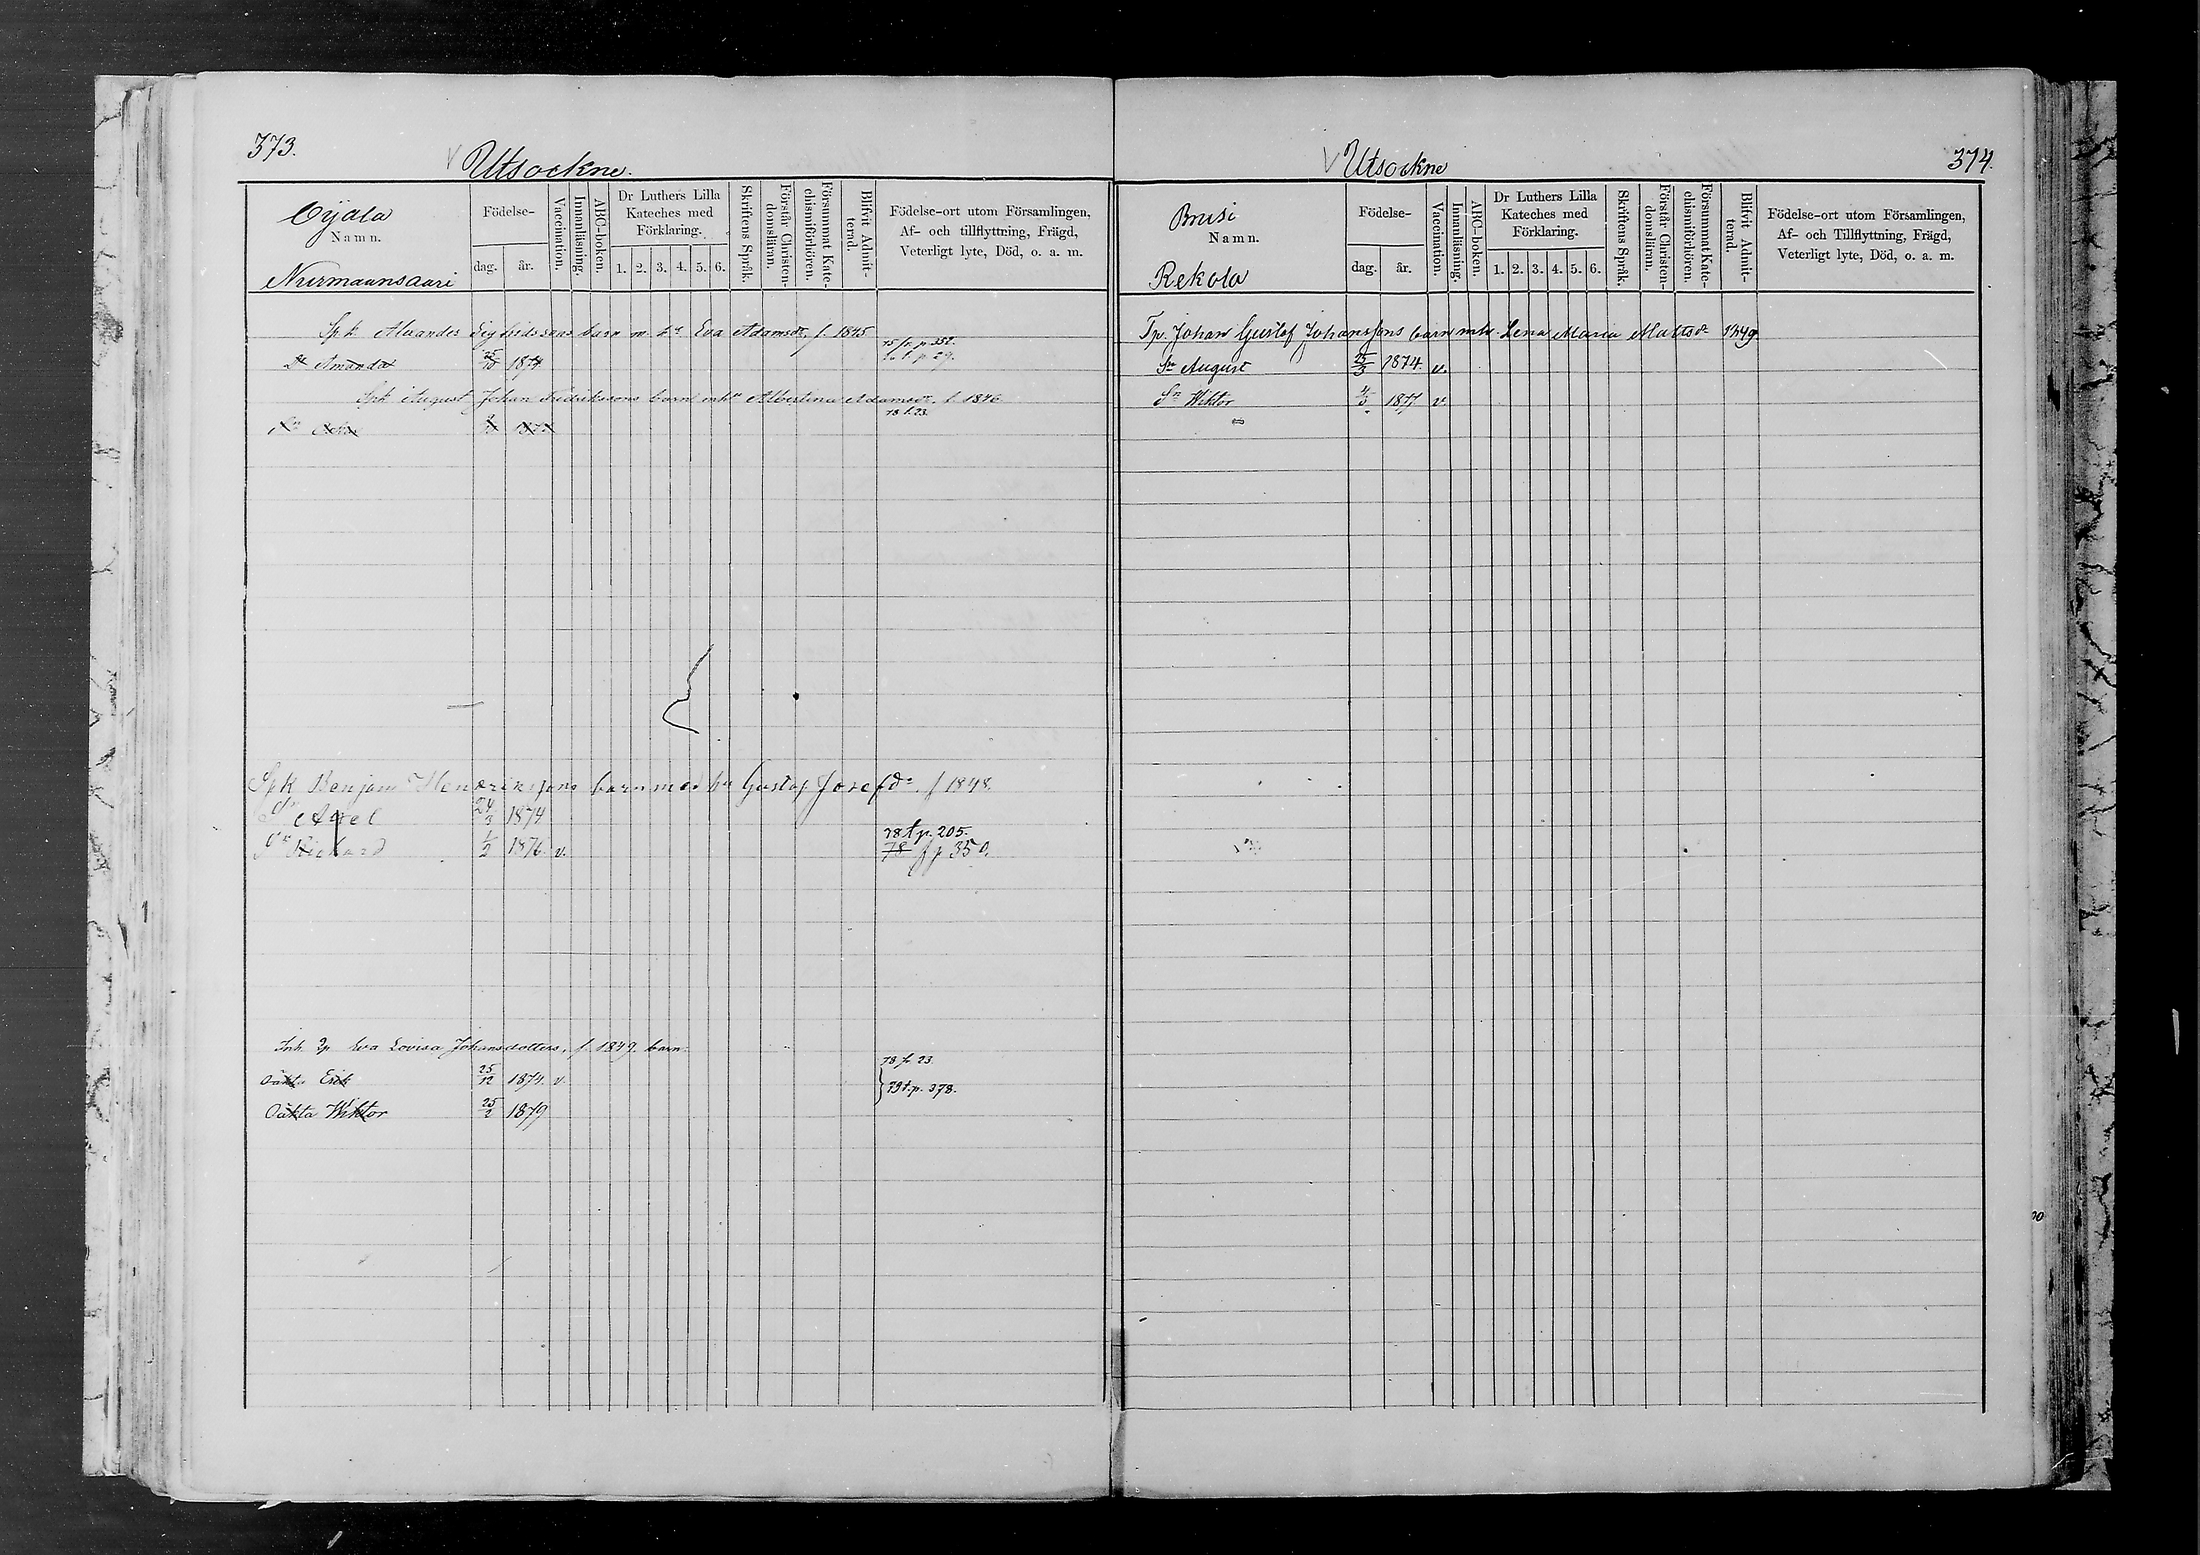 373.
Utsockne.
Öijala
Namn.
Nurmaansaari
Födelse-
dag.
år.
Vaccination.
Innanläsning.
ABC-boken.
Dr Luthers Lilla
Kateches med
Förklaring.
1. 2. 3. 4. 5. 6.
Skriftens Språk.
Förstår Christen-
domsläran.
Försummat Kate-
chismiförhören.
Blifvit Admit-
terad.
Födelse-ort utom Församlingen,
Af- och tillflyttning, Frägd,
Veterligt lyte, Död, o. a. m.
Spk Alexander Sigfridssons barn m. h. Eva Adamsdr, f. 1845
75 fr. p. 352.
Dr Amanda 25/10 1874
t. p. 29.
Spk August Johan Fredrikssons barn mhu Albertina Adamsdr. f. 1846
78 f. 23.
Spk Benjam Henrikssons barn med hu Gustaf Josefdr. f 1848.
Sn Axel 24/3 1874
78 t p. 205.
Sn Rickard 1/2 1876. v.
78 f p 350.
Inh. Eva Lovisa Johansdotters, f. 1849. barn.
78 f. 23
Oäkta Erik 25/12 1874. v.
79 t. p. 378.
Oäkta Wiktor 25/2 1879
374.
Utsockne
Brusi
Namn.
Rekola
Födelse-
dag.
år.
Vaccination.
Innanläsning.
ABC-boken.
Dr Luthers Lilla
Kateches med
Förklaring.
1. 2. 3. 4. 5. 6.
Skriftens Språk.
Förstår Christen-
domsläran.
Försummat Kate-
chismiförhören.
Blifvit Admit-
terad.
Födelse-ort utom Församlingen,
Af- och Tillflyttning, Frägd,
Veterligt lyte, Död, o. a. m.
Tp. Johan Gustaf Johanssons barn mhu. Lena Maria Mattsdr 1849.
Sn August 25/3 1874. v.
Sn Wiktor 4/5 1877. v.